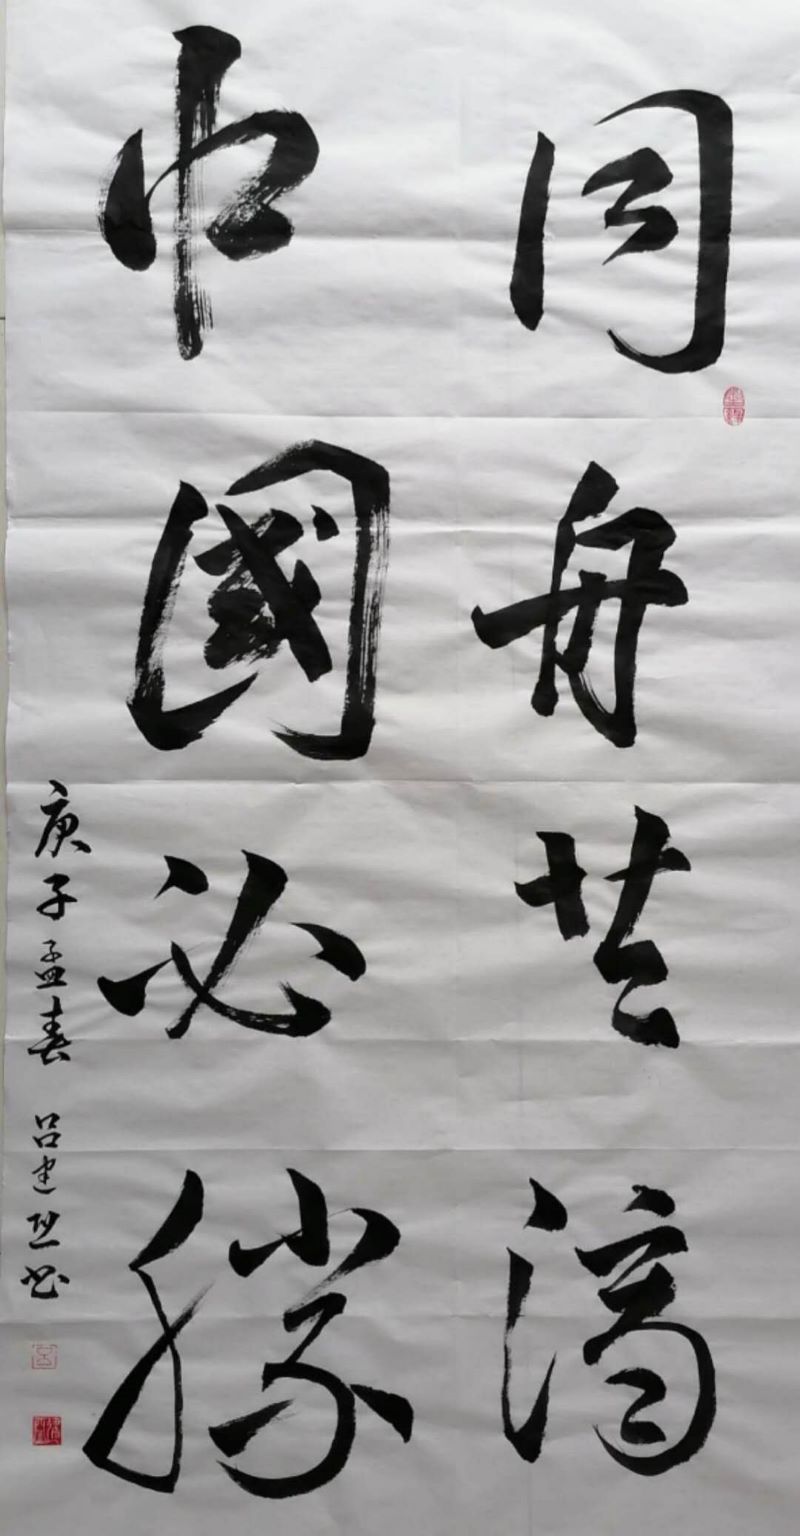 同舟共濟
中國必勝
庚子孟春 吕建书